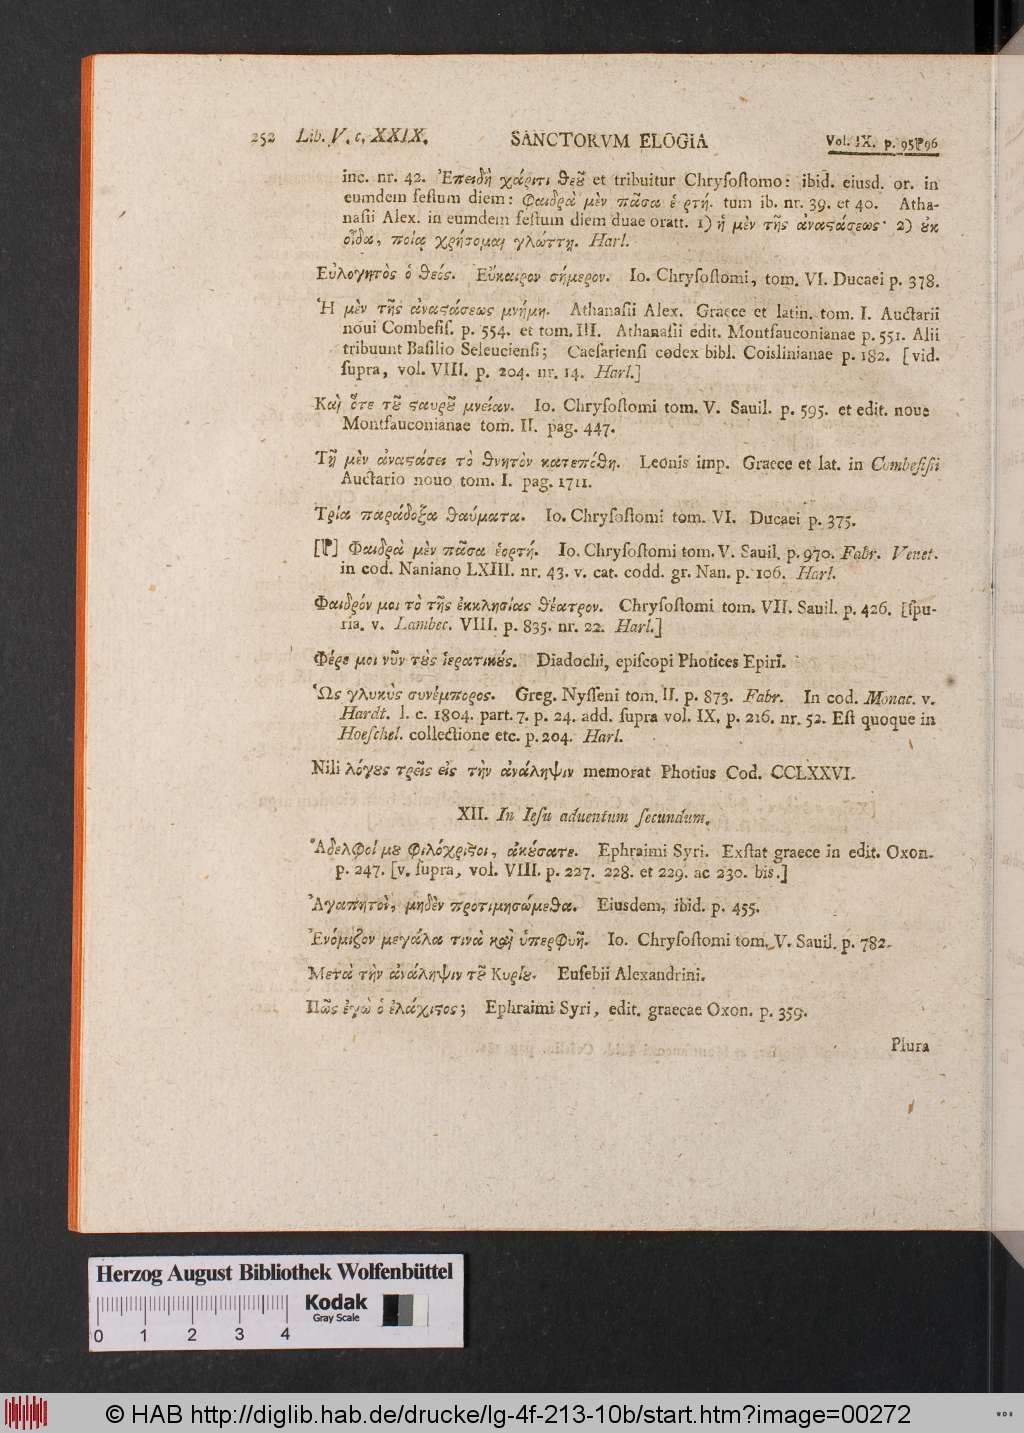 252 Lib. V. c. XXIX. SANCTORVM ELOGIA Vol. IX. p. 95 96
inc. nr. 42. Ἐπειδὴ χάριτι θεȣ͂ et tribuitur Chryſoſtomo: ibid. eiusd. or. in
eumdem feſtum diem: Φαιδρὰ μὲν πᾶσα ἑ ρτή. tum ib. nr. 39. et 40. Atha-
naſii Alex. in eumdem feſtum diem duae oratt. 1) ἡ μὲν τῆς ἀναϛάσεως· 2) ȣκ
οἶδα, ποίᾳ χρήσομαι γλώττῃ. Harl.
Εὐλογητὸς ὁ θεός. Εὔκαιρον σήμερον. Io. Chryſoſtomi, tom. VI. Ducaei p. 378.
Ἡ μὲν τῆς ἀναϛάσεως μνήμη. Athanaſii Alex. Graece et latin. tom. I. Auctarii
noui Combefiſ. p. 554. et tom. III. Athanaſii edit. Montfauconianae p. 551. Alii
tribuunt Baſilio Seleucienſi; Caeſarienſi codex bibl. Coislinianae p. 182. [vid.
ſupra, vol. VIII. p. 204. nr. 14. Harl.]
Καὶ ὅτε τȣ͂ ϛαυρȣ͂ μνείαν. Io. Chryſoſtomi tom. V. Sauil. p. 595. et edit. noue
Montfauconianae tom. II. pag. 447.
Τῇ μὲν ἀναϛάσει τὸ θνητὸν κατεπόθη. Leonis imp. Graece et lat. in Combefiſii
Auctario nouo tom. I. pag. 1711.
Τρία παράδοξα θαύματα. Io. Chryſoſtomi tom. VI. Ducaei p. 375.
Φαιδρὰ μὲν πᾶσα ἑορτή. Io. Chryſoſtomi tom. V. Sauil. p. 970. Fabr. Venet.
in cod. Naniano LXIII. nr. 43. v. cat. codd. gr. Nan. p. 106. Harl.
Φαιδρόν μοι τὸ τῆς ἐκκλησίας θέατρον. Chryſoſtomi tom. VII. Sauil. p. 426. [ſpu-
ria. v. Lambec. VIII. p. 835. nr. 22. Harl.]
Φέρε μοι νῦν τȣ̀ς ἱερατικȣ́ς. Diadochi, epiſcopi Photices Epiri.
Ὡς γλυκὺς συνέμπορος. Greg. Nyſſeni tom. II. p. 873. Fabr. In cod. Monac. v.
Hardt. l. c. 1804. part. 7. p. 24. add. ſupra vol. IX. p. 216. nr. 52. Eſt quoque in
Hoeſchel. collectione etc. p. 204. Harl.
Nili λόγȣς τρεῖς εἰς τὴν ἀνάληψιν memorat Photius Cod. CCLXXVI.
XII. In Ieſu aduentum ſecundum.
Ἀδελφοί μȣ φιλόχριϛοι, ἀκȣ́σατε. Ephraimi Syri. Exſtat graece in edit. Oxon.
p. 247. [v. ſupra, vol. VIII. p. 227. 228. et 229. ac 230. bis.]
Ἀγαπητοὶ, μηδὲν προτιμησώμεθα. Eiusdem, ibid. p. 455.
Ἐνόμιζον μεγάλα τινὰ καὶ ὑπερφυῆ. Io. Chryſoſtomi tom. V. Sauil. p. 782.
Μετὰ τὴν ἀνάληψιν τȣ͂ Κυρίȣ. Euſebii Alexandrini.
Πῶς ἐγὼ ὁ ἐλάχιϛος; Ephraimi Syri, edit. graecae Oxon. p. 359.
Plura
Herzog August Bibliothek Wolfenbüttel
Kodak
Gray Scale
0 1 2 3 4
© HAB http://diglib.hab.de/drucke/lg-4f-213-10b/start.htm?image=00272